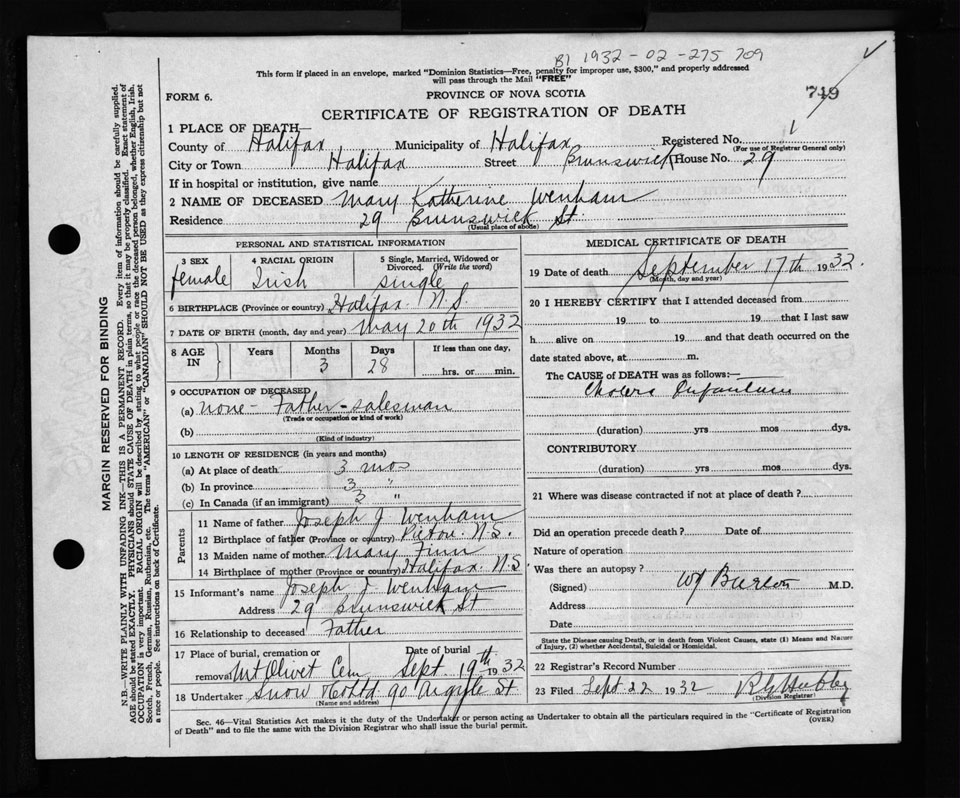 B1 1932 - 02 - 275 709
This form if placed in an envelope, marked "Dominion Statistics—Free, penalty for improper use, $300," and properly addressed
will pass through the Mail "FREE"
FORM 6.
PROVINCE OF NOVA SCOTIA
749
CERTIFICATE OF REGISTRATION OF DEATH
1 PLACE OF DEATH—
County of Halifax Municipality of Halifax Registered No.
(For use of Registrar General only)
City or Town Halifax Street Brunswick House No. 29
If in hospital or institution, give name
2 NAME OF DECEASED Mary Katherine Wenham
Residence 29 Brunswick St.
(Usual place of abode)
PERSONAL AND STATISTICAL INFORMATION
3 SEX female
4 RACIAL ORIGIN Irish
5 Single, Married, Widowed or Divorced. (Write the word) single
6 BIRTHPLACE (Province or country) Halifax N.S.
7 DATE OF BIRTH (month, day and year) May 20th 1932
8 AGE IN Years Months 3 Days 28 If less than one day, hrs. or min.
9 OCCUPATION OF DECEASED
(a) none - Father - salesman
(Trade or occupation or kind of work)
(b)
(Kind of industry)
10 LENGTH OF RESIDENCE (in years and months)
(a) At place of death 3 mos
(b) In province 3 "
(c) In Canada (if an immigrant) 3 "
Parents
11 Name of father Joseph J Wenham
12 Birthplace of father (Province or country) Pictou. N.S.
13 Maiden name of mother Mary Finn
14 Birthplace of mother (Province or country) Halifax. N.S
15 Informant's name Joseph J. Wenham
Address 29 Brunswick St
16 Relationship to deceased Father
17 Place of burial, cremation or removal Mt Olivet Cem Date of burial Sept. 19th 1932
18 Undertaker Snow & Co Ltd 90 Argyle St
(Name and address)
MEDICAL CERTIFICATE OF DEATH
19 Date of death September 17th 1932.
(Month, day and year)
20 I HEREBY CERTIFY that I attended deceased from
19 to 19 that I last saw
h alive on 19 and that death occurred on the
date stated above, at m.
The CAUSE of DEATH was as follows:—
Cholera Infantum
(duration) yrs mos dys.
CONTRIBUTORY
(duration) yrs mos dys.
21 Where was disease contracted if not at place of death?
Did an operation precede death? Date of
Nature of operation
Was there an autopsy?
(Signed) M.D.
Address
Date
State the Disease causing Death, or in death from Violent Causes, state (1) Means and Nature
of Injury, (2) whether Accidental, Suicidal or Homicidal.
22 Registrar's Record Number
23 Filed Sept 22 1932
(Division Registrar)
Sec. 46—Vital Statistics Act makes it the duty of the Undertaker or person acting as Undertaker to obtain all the particulars required in the "Certificate of Registration
of Death" and to file the same with the Division Registrar who shall issue the burial permit.
(OVER)
MARGIN RESERVED FOR BINDING
N.B.—WRITE PLAINLY WITH UNFADING INK—THIS IS A PERMANENT RECORD. Every item of information should be carefully supplied.
AGE should be stated EXACTLY. PHYSICIANS should STATE CAUSE OF DEATH in plain terms, so that it may be properly classified. Exact statement of
OCCUPATION is very important. RACIAL ORIGIN will be described by stating to what people or race the deceased person belonged, whether English, Irish,
Scotch, French, German, Russian, Ruthenian, etc. The terms "AMERICAN" or "CANADIAN" SHOULD NOT BE USED as they express citizenship but not
a race or people. See instructions on back of Certificate.